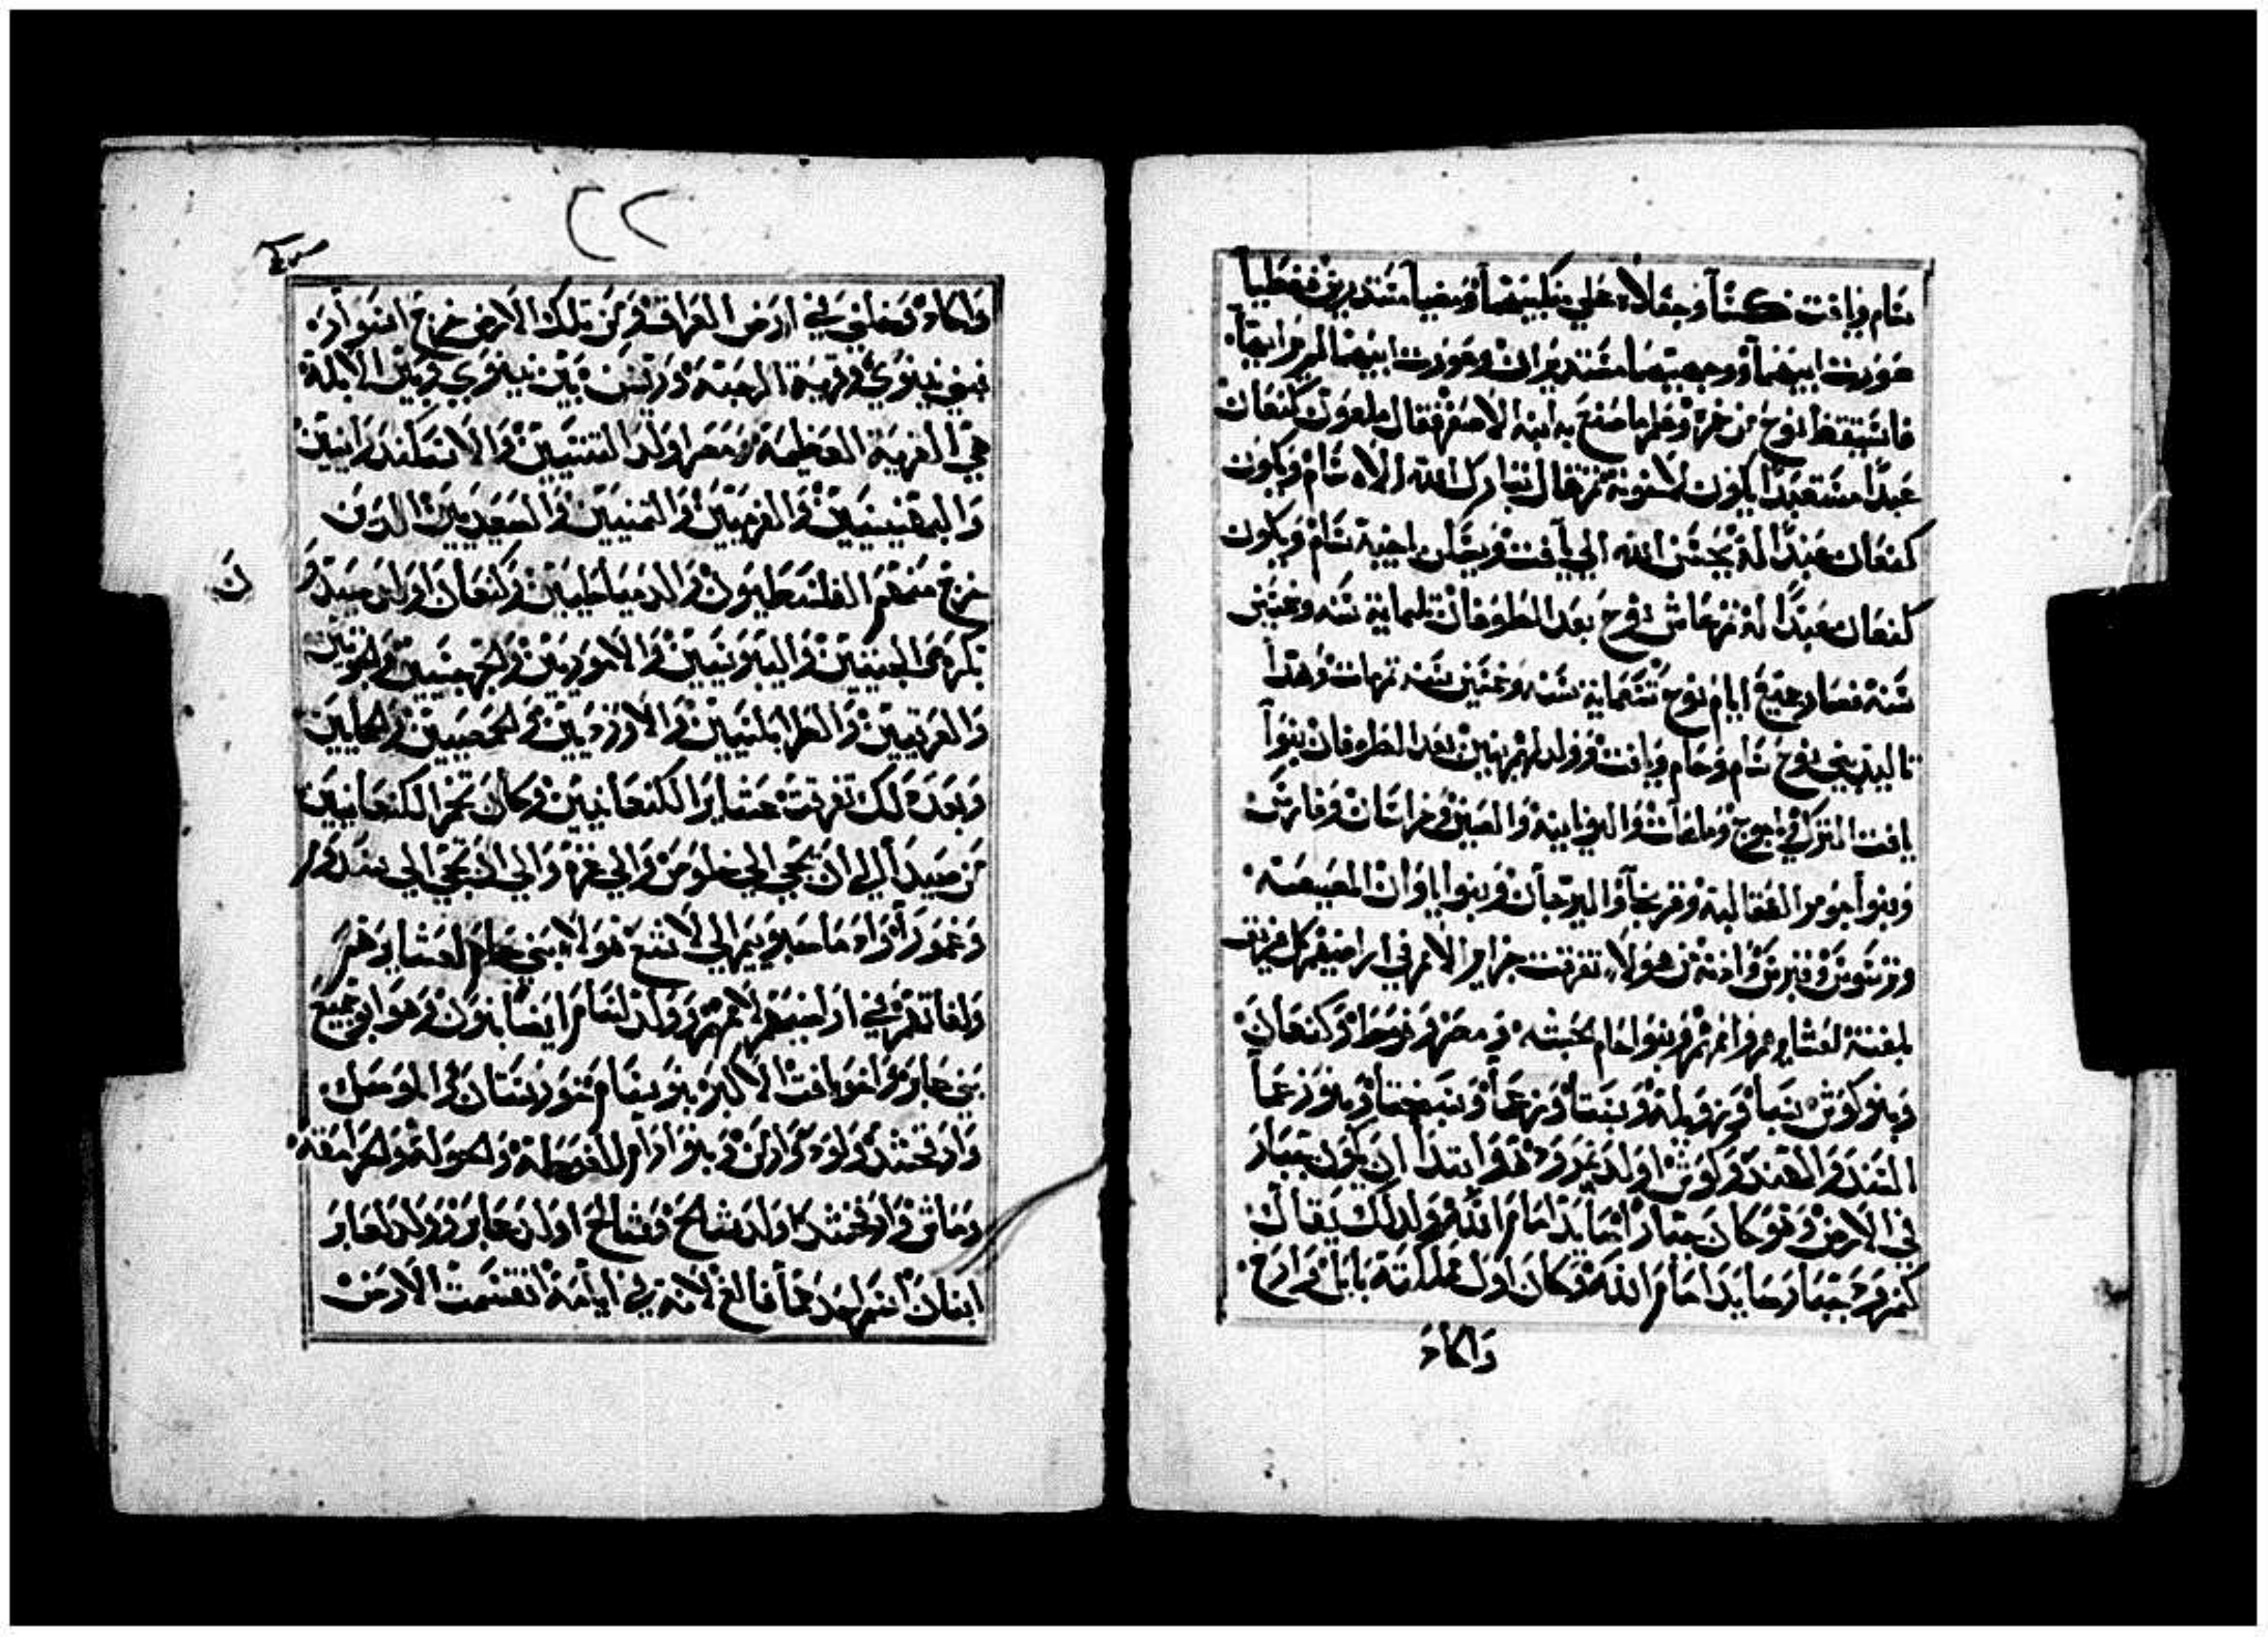 سام ويافت كسآ وجعلاه علي منكبيهما ومضيا مستدبرين فغطيا
عورت ابيهما ووجهيهما مستديران وعورت ابيهما لم يرايها
فاستيقظ نوح من خمره وعلم ما صنع به ابنه الاصغر فقال ملعون كنعان
عبدا مستعبدا يكون لاخوته ثم قال تبارك الله الاه سام ويكون
كنعان عبدا له يحسن الله الي يافت ويحل اخبية سام ويكون
كنعان عبدا له ثم عاش نوح بعد الطوفان ثلثماية سنه وخمسين
سنة فصار جميع ايام نوح تسعماية سنه وخمسين سنه ثم مات وهدا
تاليد بني نوح سام وحام ويافت وولد لهم بنين بعد الطوفان بنوا
يافت الترك وياجوج وماهات واليونانيه والصين وخراسان وفارس
وبنوا جومر الصقالبة وفرنجا والبرجان وبنوا ياوان المصيصه
وترسوس وقبرس وادنة من هولاء تفرقت جزاير الامم في اراضيهم كل فريق
بلغته لعشايرهم واممهم وبنوا حام الحبشه ومصر وفوط وكنعان
وبنو كوش سبا وزويلة وسبتا ورعما وسبختا وبنو رعما
السند والهند وكوش اولد نمرود هو ابتدا ان يكون جبار
في الارض وهو كان جبارا صايدا امام الله ولدلك يقال
كنمرود جبار صايدا امام الله وكان اول مملكته بابل وارخ
واكاد
٢٢
واكاد وخلني في ارض العراق ومن تلك الارض خرج اشوا
فبني نينوي وقرية الرحبه ورسن بين نينوي وبين الابلة
هي القرية العظيمة ومصر اولد التنسيين والاسكندرانيين
والبهنسيين والفرميين والتمنيين والسعيديين الدين
خرج منهم الفلسطيون والدمياطيين وكنعان اولد صيدا
بكره والحيثيين واليبوسيين والاموريين والجرجسيين والحويين
والعرقيين والطرابلسيين والاروديين والحمصيين والحمايين
وبعد دلك تفرقت عشاير الكنعانيين وكان تخم الكنعانيين
من صيدا الي ان يجي الي خلوص والي غزة والي ان تجي الي سدوم
وعمورا وادما صبوييم الي لاشع هولاء بني حام لعشايرهم
ولغاتهم في اراضيهم لاممهم وولد لسام ايضا بنون وهو ابو جميع
بني عابر واخو يافت الاكبر بنو سام خورستان والموصل
وارفخشد ولود وارمن وبنوا ارام الغوطة والحولة والجرامقه
وماش وارفخشد اولد شالخ وشالخ اولد عابر وولد لعابر
ابنان اسم احدهما فالغ لانه في ايامه انقسمت الارض